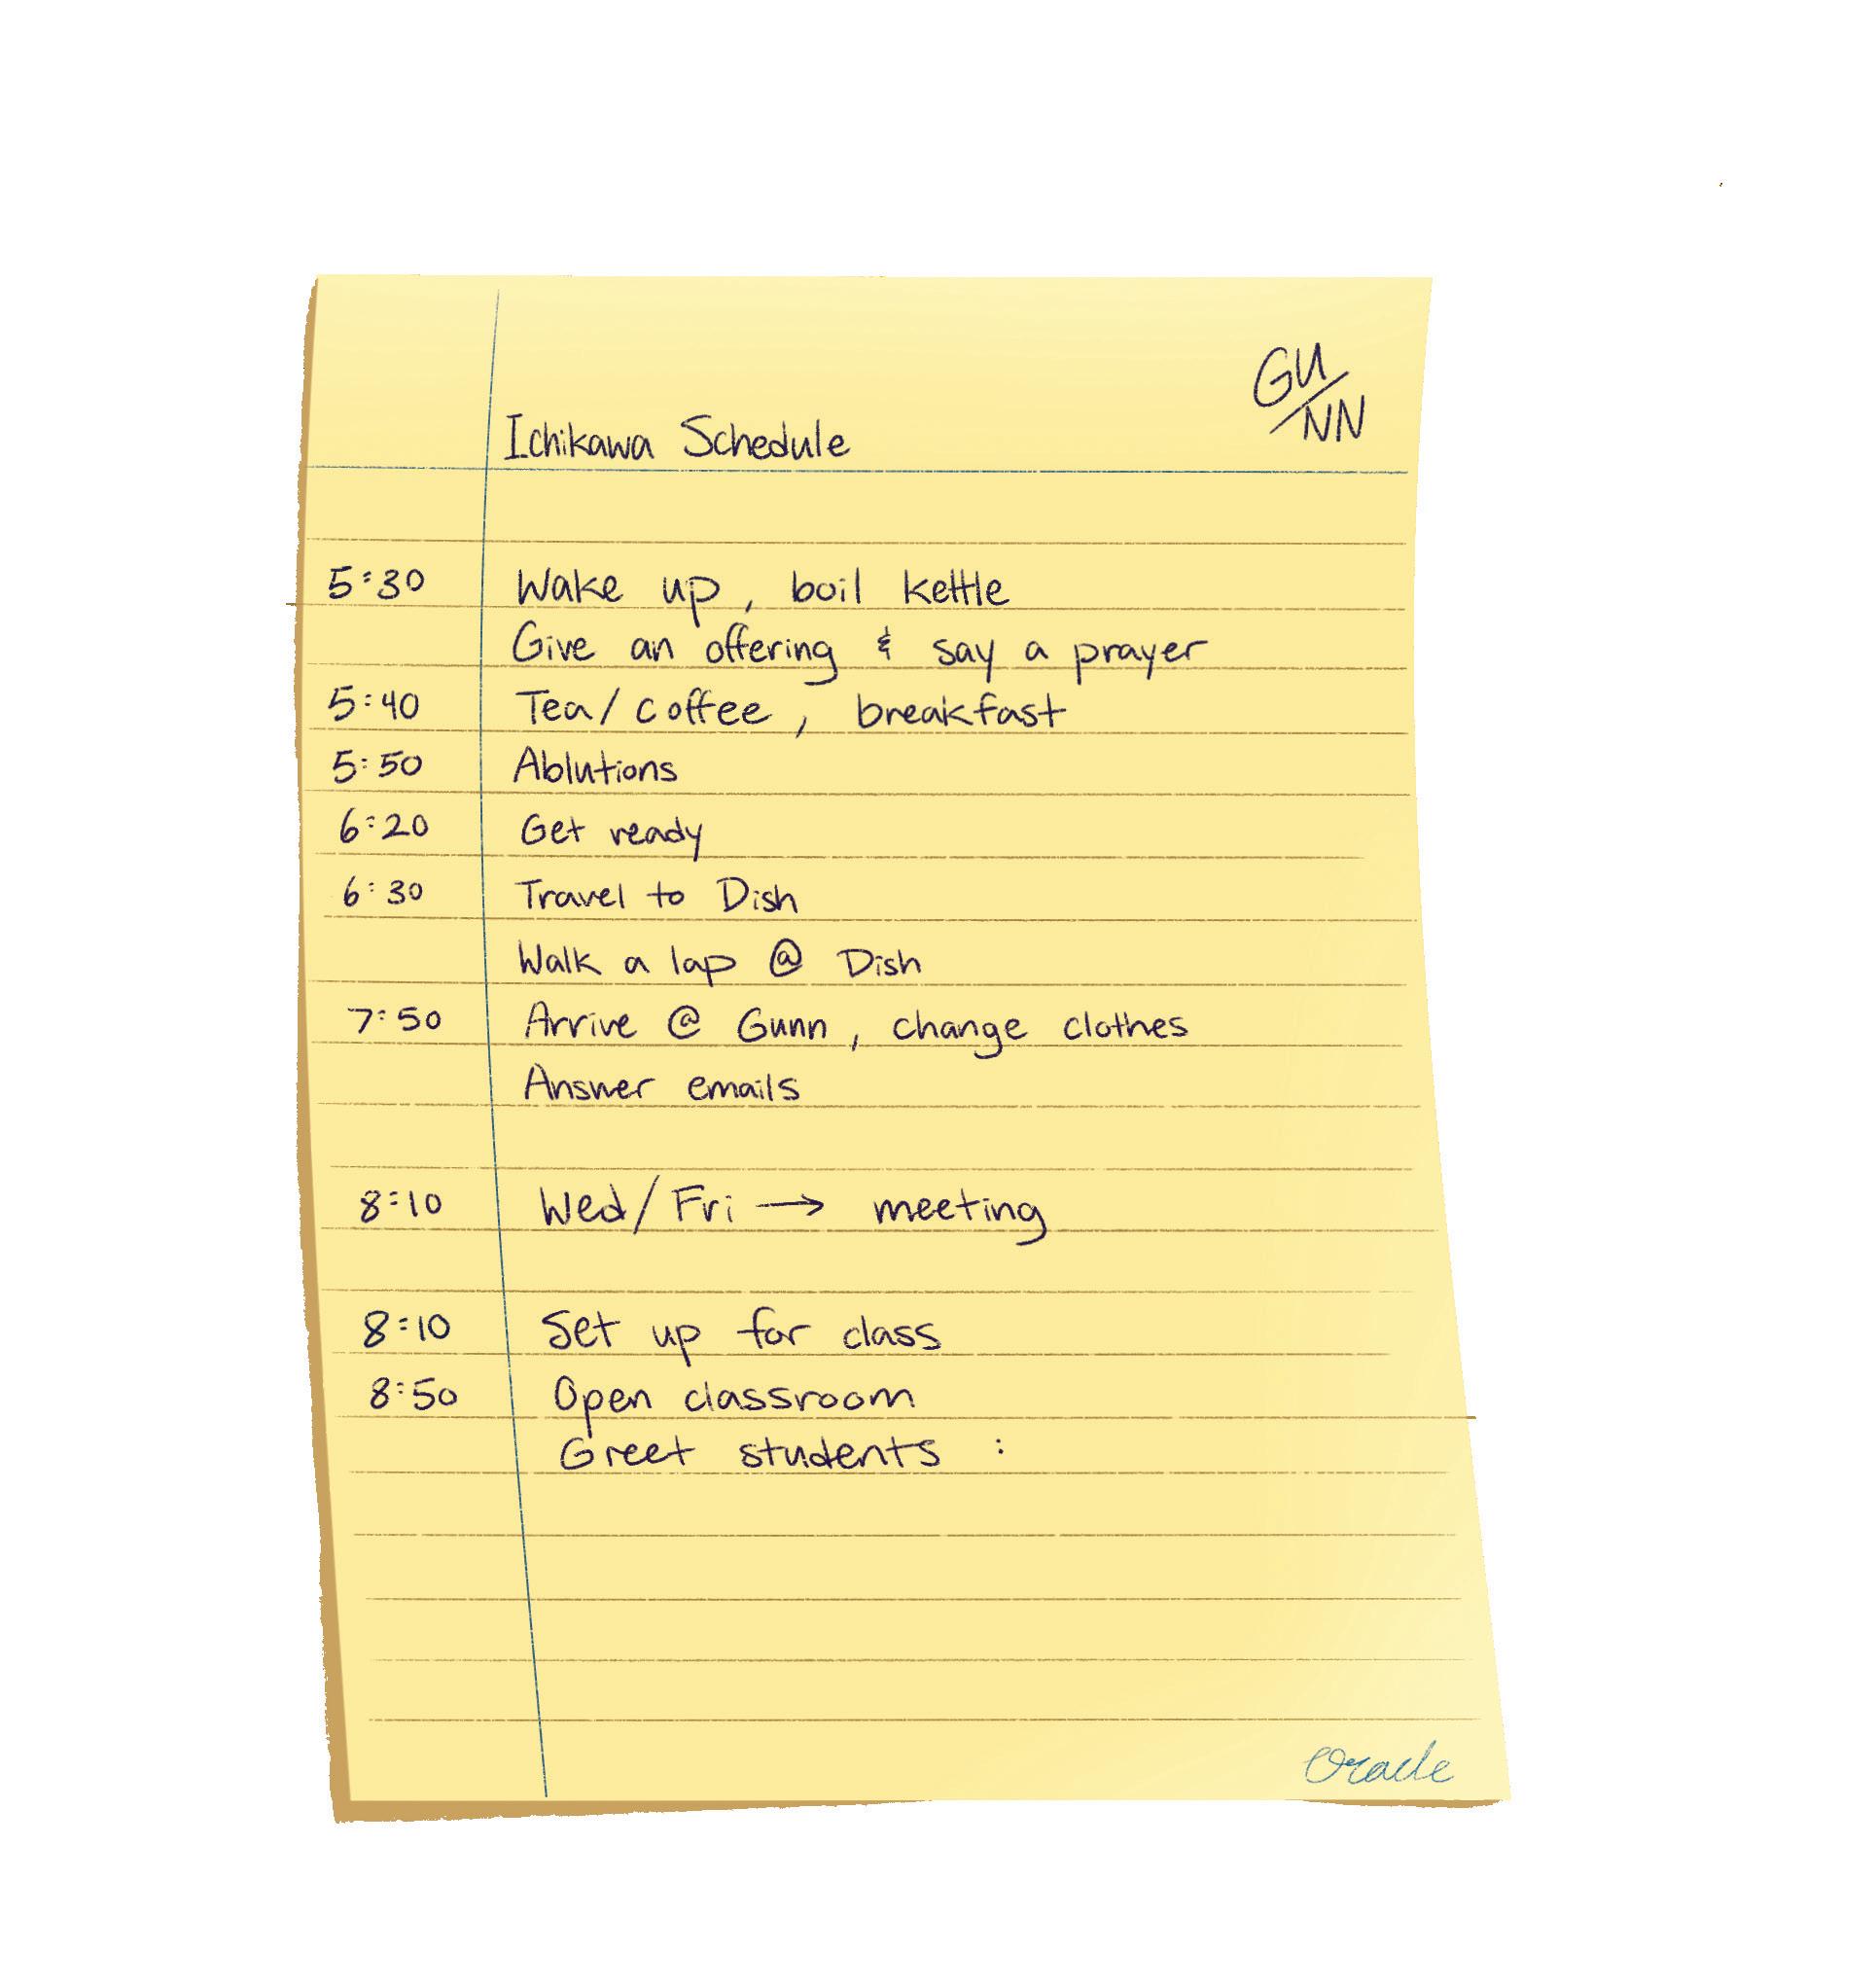 GU/NN
Ichikawa Schedule
5:30 Wake up, boil kettle
Give an offering & say a prayer
5:40 Tea/coffee, breakfast
5:50 Ablutions
6:20 Get ready
6:30 Travel to Dish
Walk a lap @ Dish
7:50 Arrive @ Gunn, change clothes
Answer emails
8:10 Wed/Fri → meeting
8:10 Set up for class
8:50 Open classroom
Greet students :
Oracle